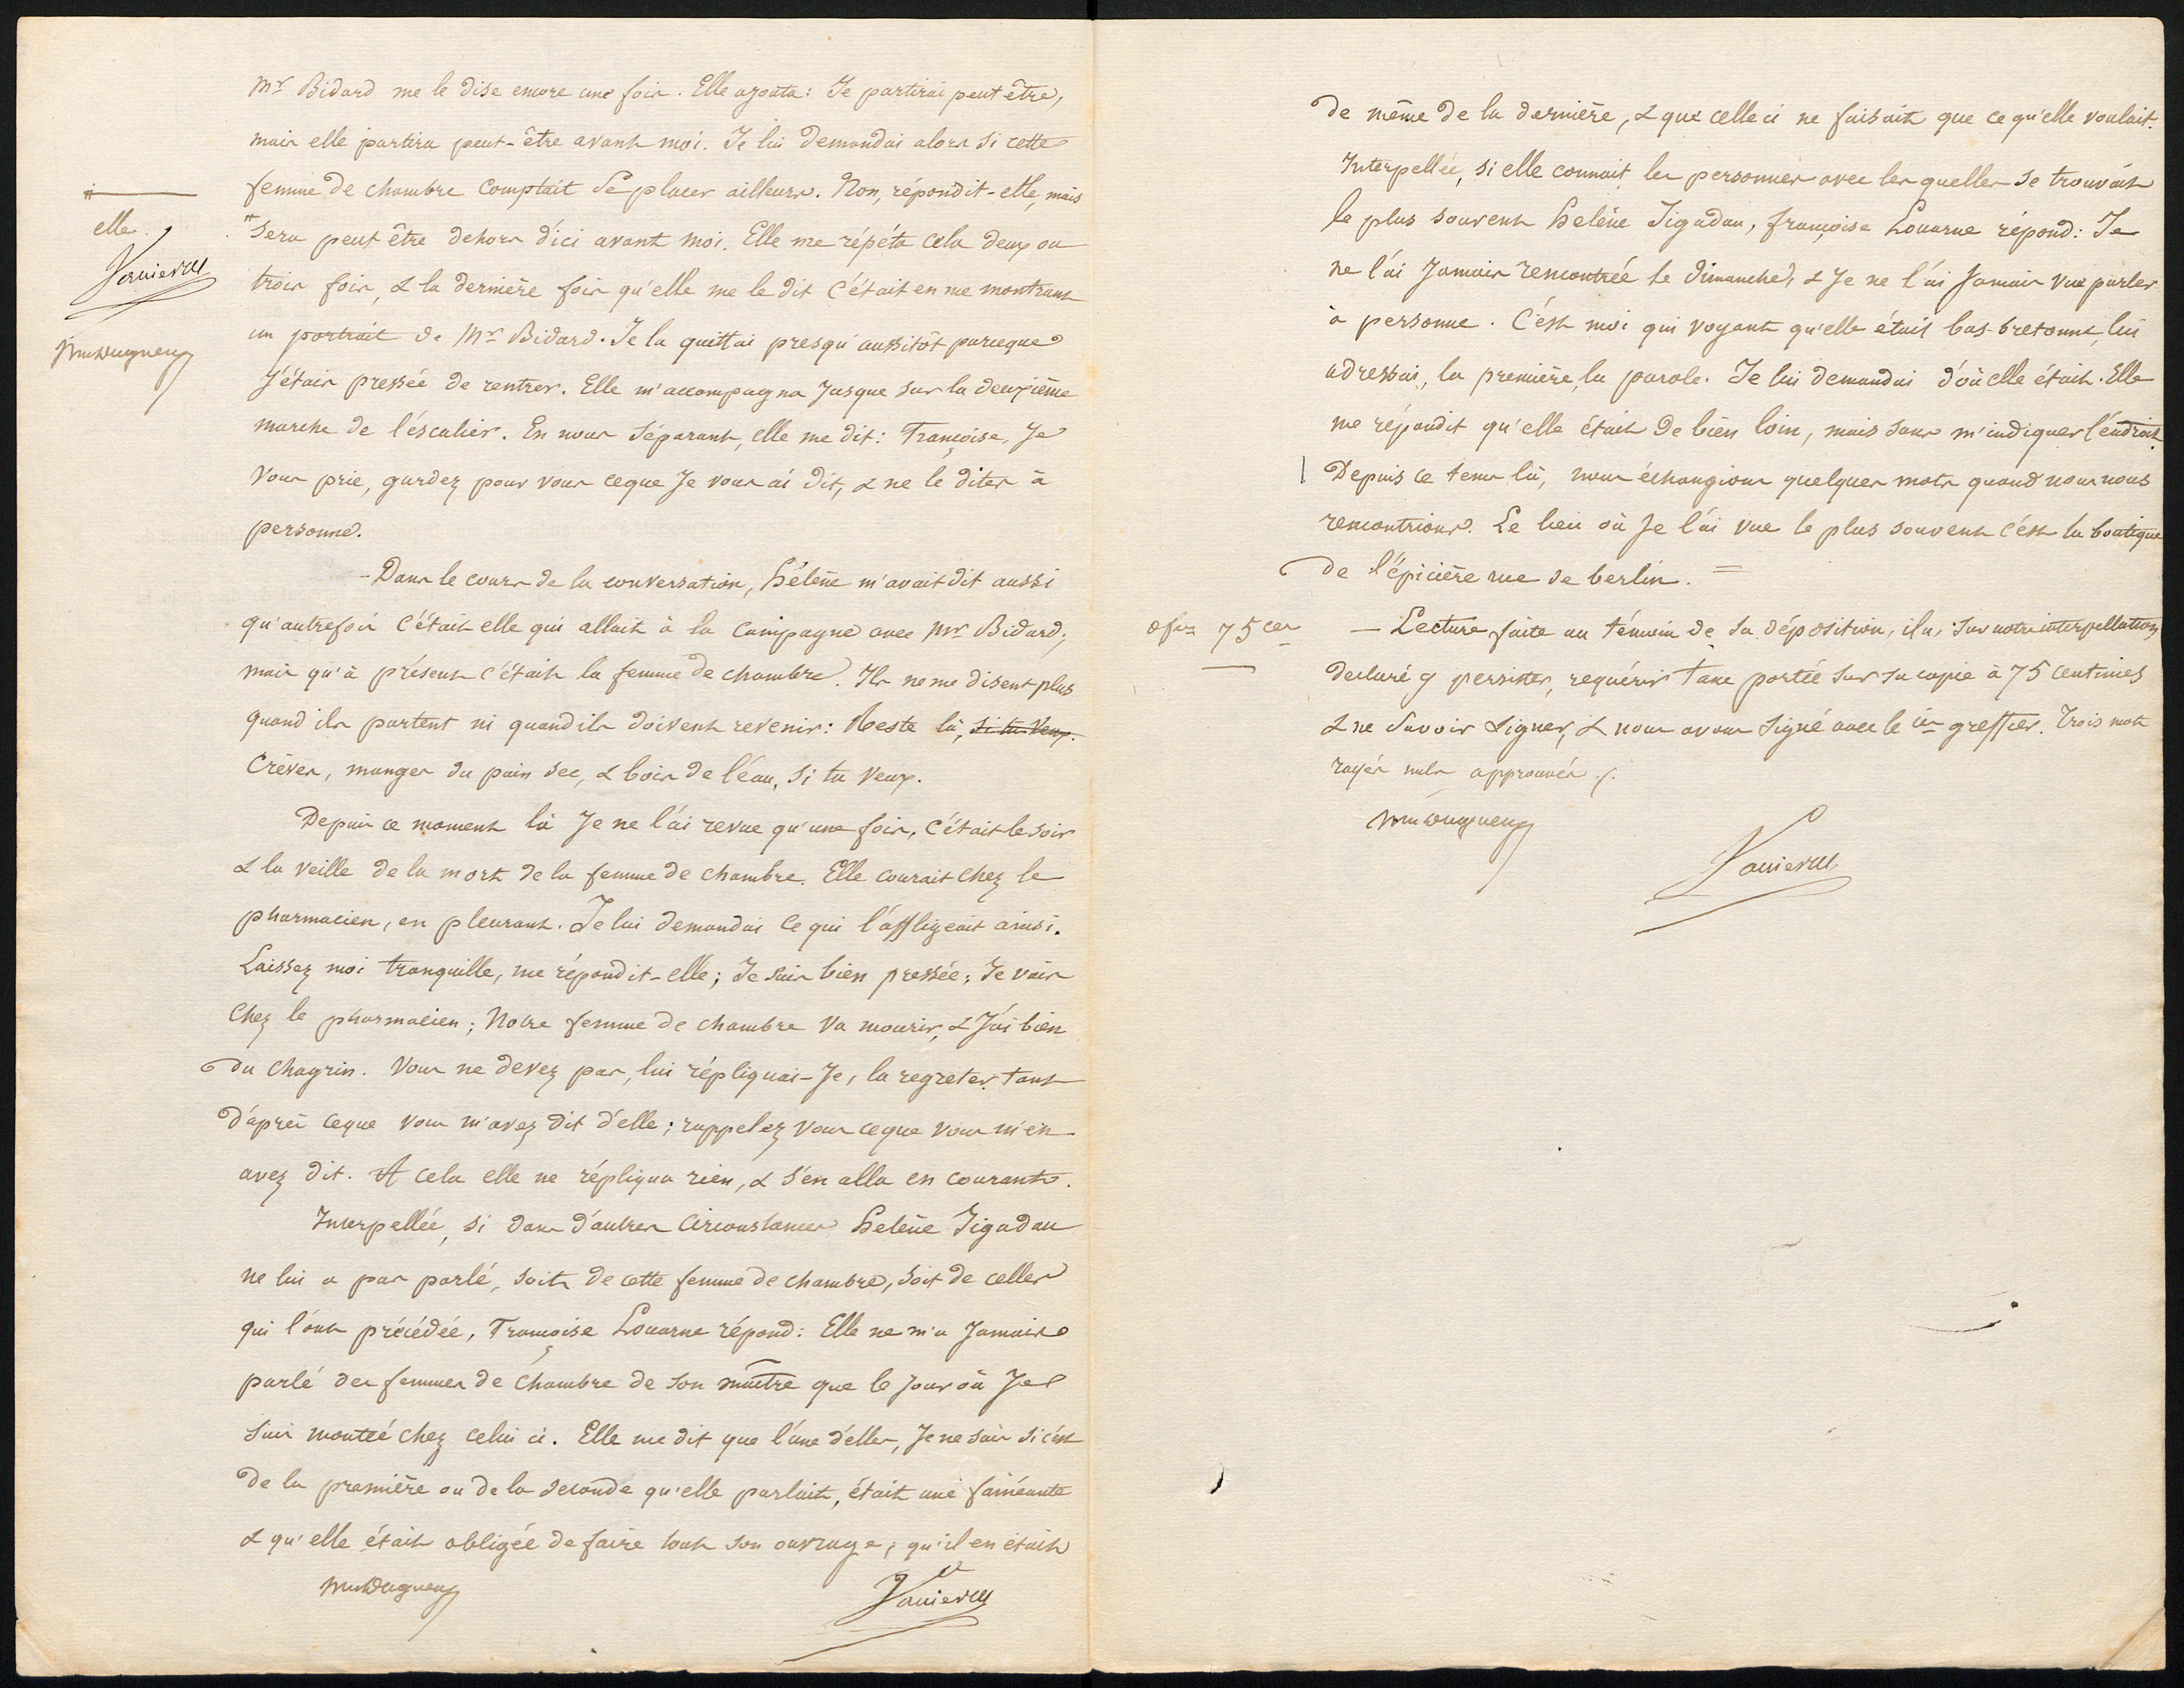 Mr Bidard me le dise encore une fois. Elle ajouta: Je partirai peut être,
mais elle partira peut-être avant moi. Je lui demandai alors si cette
femme de chambre comptait se placer ailleurs. Non, répondit-elle, mais
elle.
sera peut être dehors d'ici avant moi. Elle me répéta cela deux ou
trois fois, & la dernière fois qu'elle me le dit c'était en me montrant
un portrait de Mr Bidard. Je la quittai presqu'aussitôt parceque
j'étais pressée de rentrer. Elle m'accompagna jusque sur la deuxième
marche de l'éscalier. En nous séparant, elle me dit: Françoise, Je
vous prie, gardez pour vous ceque Je vous ai dit, & ne le dites à
personne.
- Dans le cours de la conversation, hélène m'avait dit aussi
qu'autrefois c'était elle qui allait à la campagne avec Mr Bidard;
mais qu'à présent c'était la femme de chambre. Ils ne me disent plus
quand ils partent ni quand ils doivent revenir: Reste là, si tu veux.
Crêves, manges du pain sec, & bois de l'eau, si tu veux.
Depuis ce moment là Je ne l'ai revue qu'une fois, c'était le soir
& la veille de la mort de la femme de chambre. Elle courait chez le
pharmacien, en pleurant. Je lui demandai ce qui l'affligeait ainsi.
Laissez moi tranquille, me répondit-elle; Je suis bien pressée; Je vais
chez le pharmacien; Notre femme de chambre va mourir, & J'ai bien
du chagrin. Vous ne devez pas, lui répliquai-Je, la regreter tant
d'après ceque vous m'avez dit d'elle; rappelez vous ceque vous m'en
avez dit. A cela elle ne répliqua rien, & s'en alla en courant.
Interpellée, si dans d'autres circonstances helène Jigadau
ne lui a pas parlé, soit de cette femme de chambre, soit de celles
qui l'ont précédée, Françoise Louarne répond: Elle ne m'a Jamais
parlé des femmes de chambre de son maître que le jour où Je
suis montée chez celui ci. Elle me dit que l'une d'elles, Je ne sais si c'est
de la première ou de la seconde qu'elle parlait, était une fainéante
& qu'elle était obligée de faire tout son ouvrage; qu'il en était
de même de la dernière, & que celle ci ne faisait que ce qu'elle voulait.
Interpellée, si elle connait les personnes avec lesquelles se trouvait
le plus souvent helène Jigadau, françoise Louarne répond: Je
ne l'ai Jamais rencontrée le dimanche, & Je ne l'ai Jamais vue parler
à personne. C'est moi qui voyant qu'elle était bas-bretonne, lui
adressai, la première, la parole. Je lui demandai d'où elle était. Elle
me répondit qu'elle était de bien loin, mais sans m'indiquer l'endroit.
Depuis ce tems là, nous échangions quelques mots quand nous nous
rencontrions. Le lieu où Je l'ai vue le plus souvent c'est la boutique
de l'épicière rue de berlin. =
0fcs 75ces
- Lecture faite au témoin de sa déposition, il a, sur notre interpellation,
déclaré y persister, requérir taxe portée sur sa copie à 75 centimes
& ne savoir signer, & nous avons signé avec le cis greffier. Trois mots
rayés nuls approuvés /.